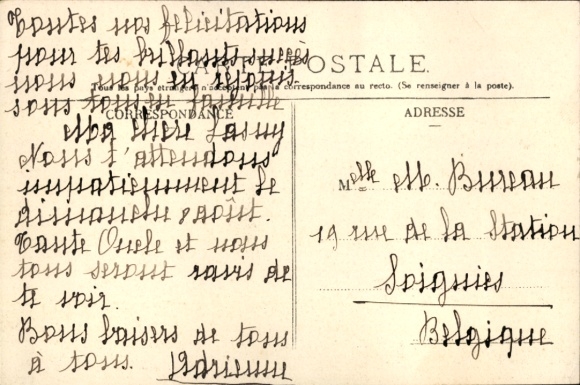 Toutes nos félicitations
pour tes brillants succès
nous nous en rejouis-
sons tous en famille
CARTE POSTALE.
Tous les pays étrangers n'acceptent pas la correspondance au recto. (Se renseigner à la poste).
CORRESPONDANCE
Ma chère
Nous t'attendons
impatiemment le
dimanche 8 août.
Tante Oncle et nous
tous seront ravis de
te voir.
Bons baisers de tous
à tous. Adrienne
ADRESSE
Melle M. Bureau
19 rue de la Station
Soignies
Belgique